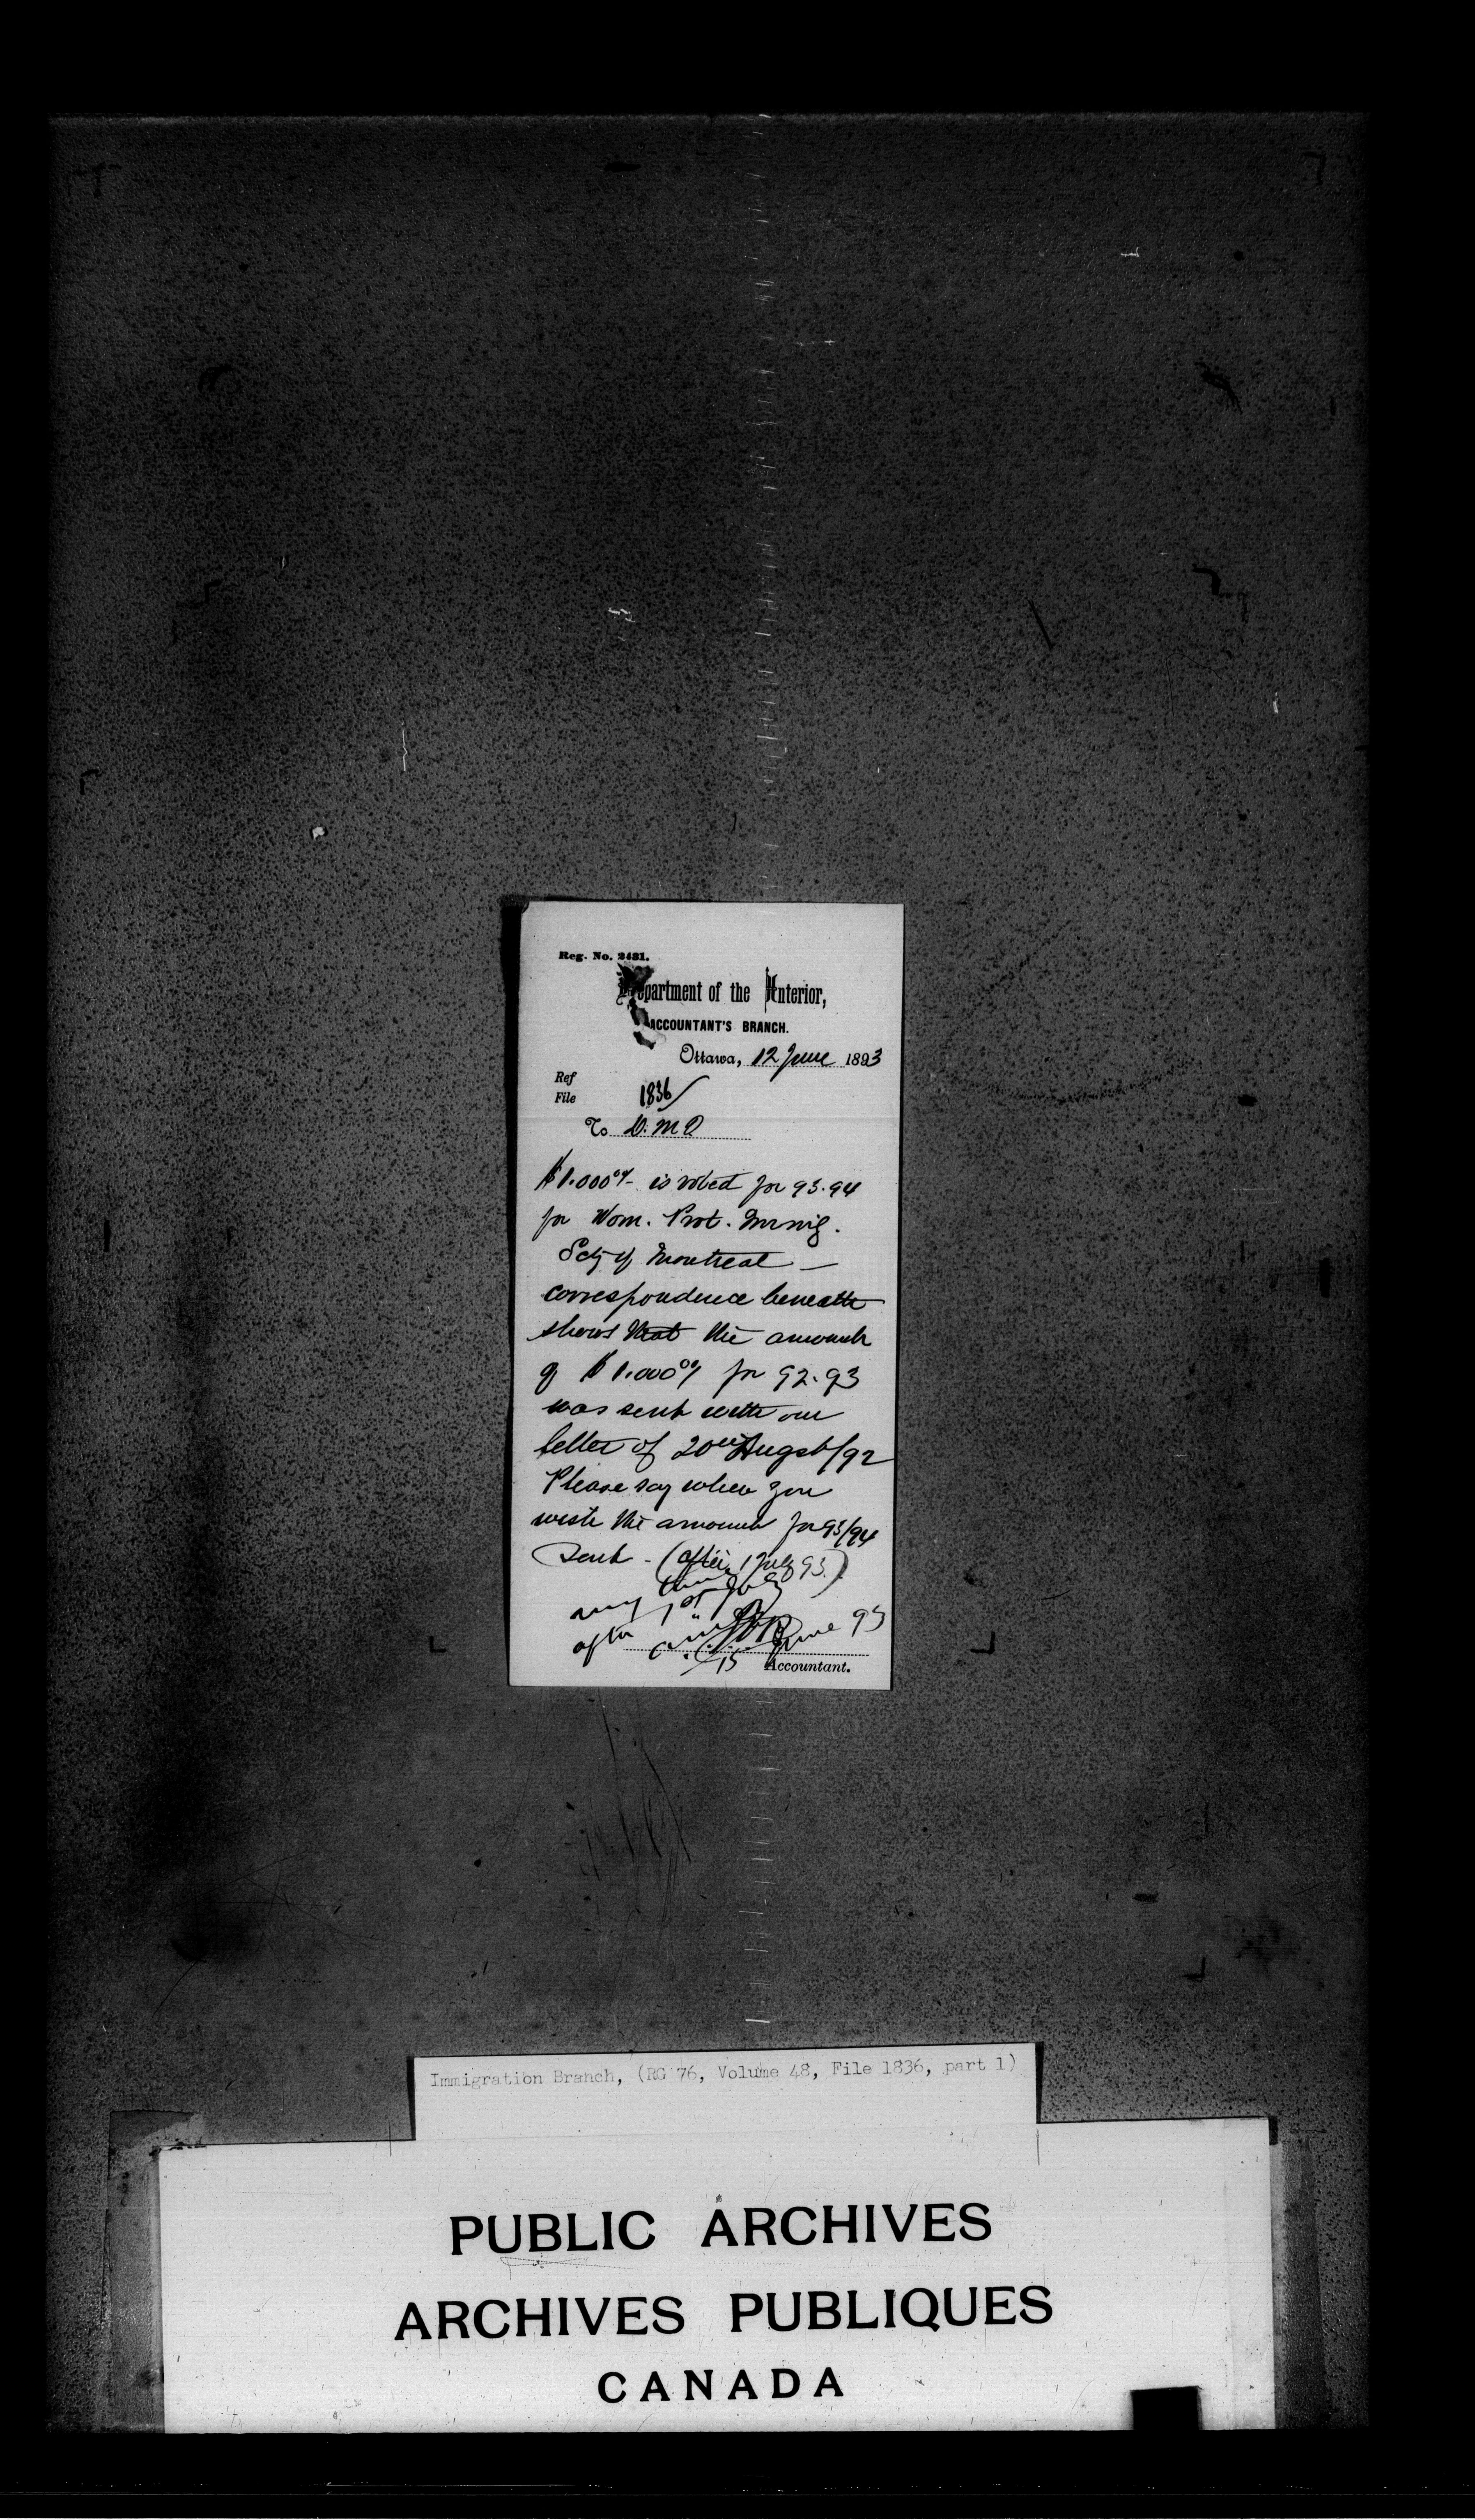 Reg. No. 2481.
Department of the Interior,
ACCOUNTANT'S BRANCH.
Ottawa, 12 June 1893
Ref
File 1836
To D. M. I
$1.000 00/ is voted for 93.94
for Wom. Prot. Immig.
Scty of Montreal —
correspondence beneath
shows that the amount
of $1.000 00/ for 92.93
was sent with our
letter of 20th Augst/92
Please say when you
wish the amount for 93/94
sent - (after 1 July 93.)
any time
after 1st July
15 June 93
Accountant.
Immigration Branch, (RG 76, Volume 48, File 1836, part 1)
PUBLIC ARCHIVES
ARCHIVES PUBLIQUES
CANADA